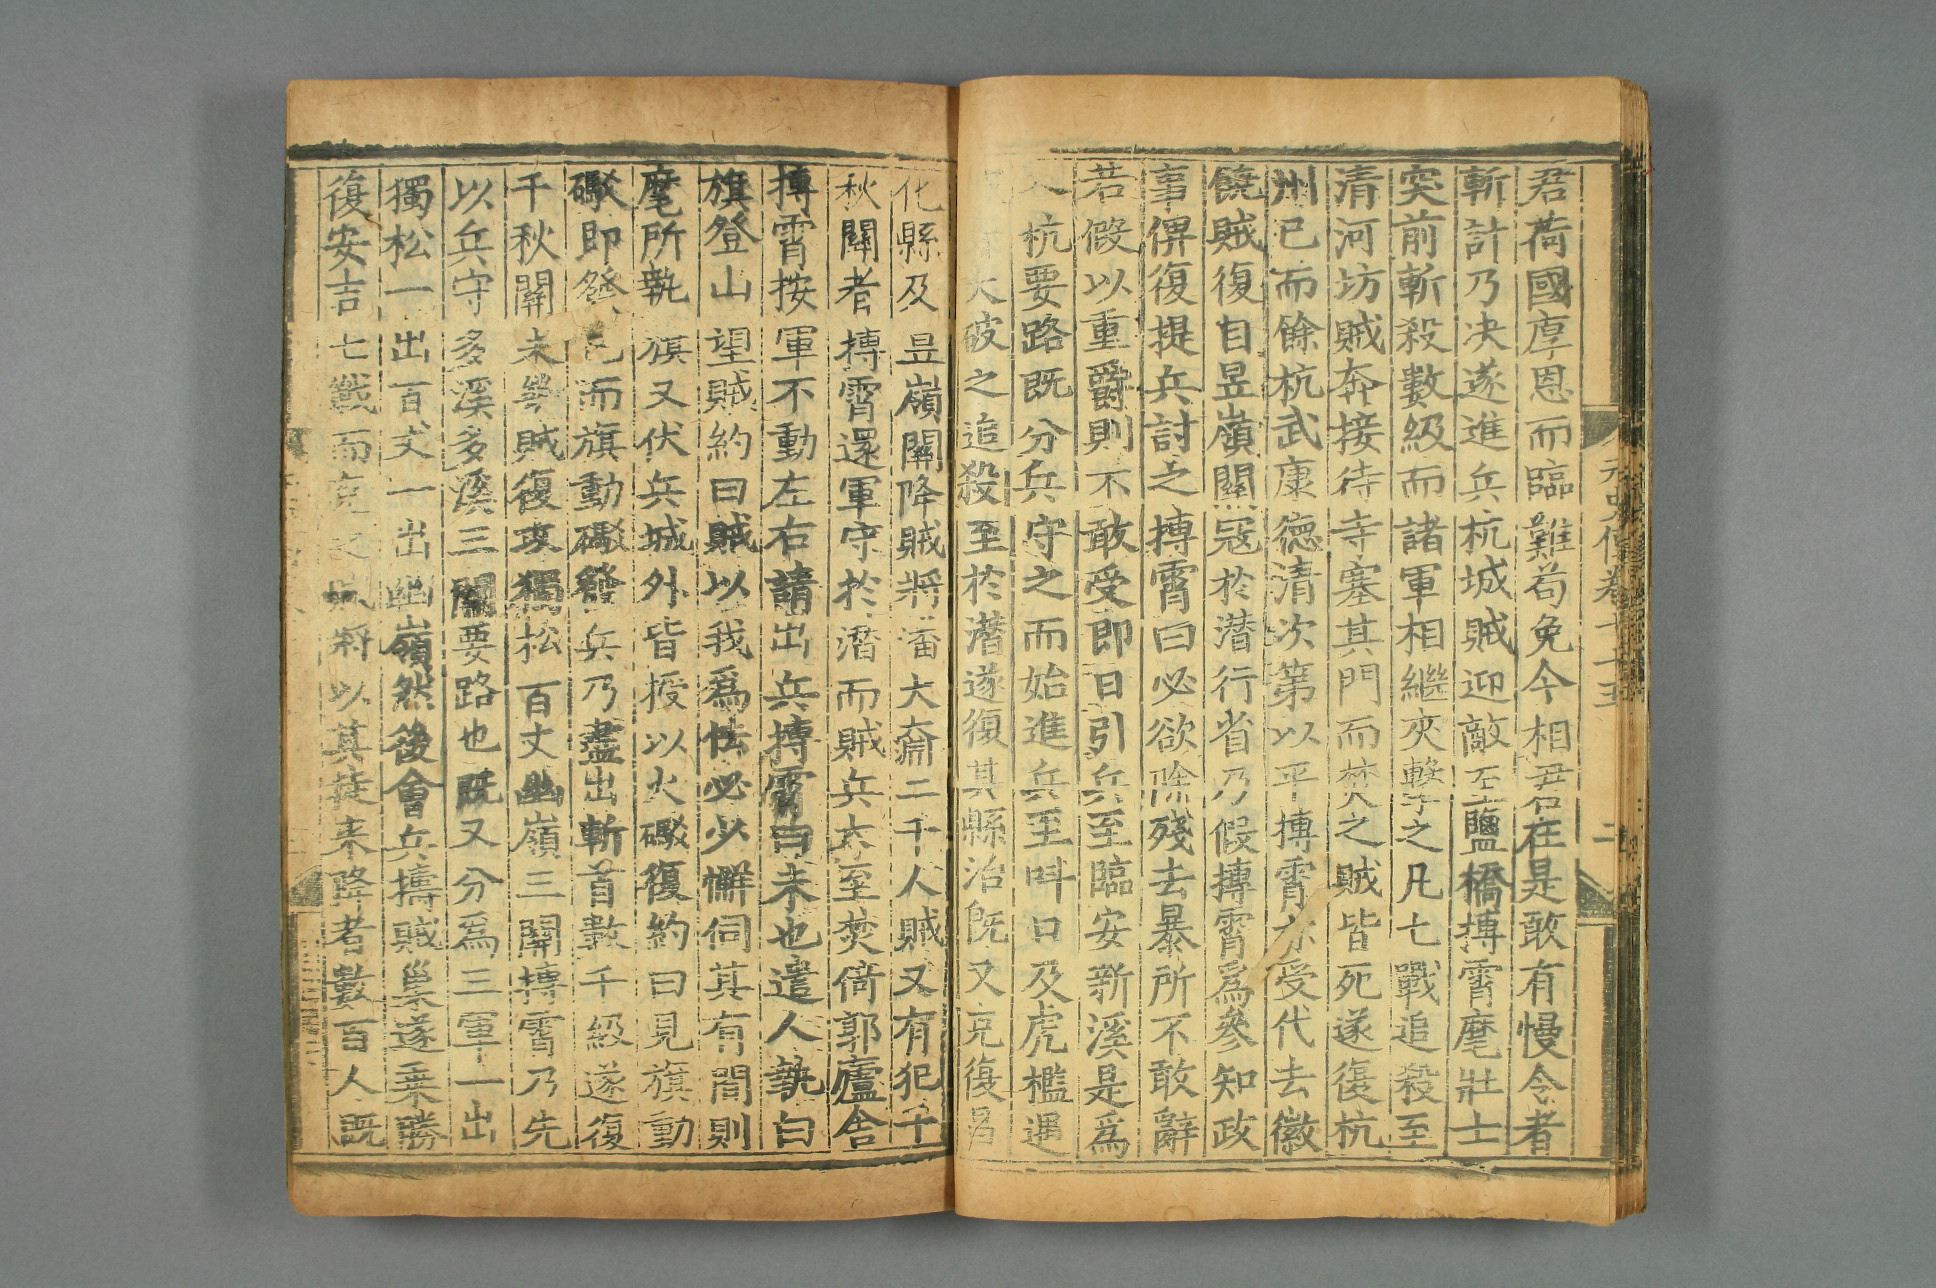 元史傳卷七十五
二
君荷國厚恩而臨難苟免今相君在是敢有慢令者
斬計乃决遂進兵杭城賊迎敵至鹽橋摶霄麾壯士
突前斬殺數級而諸軍相繼夾擊之凡七戰追殺至
清河坊賊奔接待寺塞其門而焚之賊皆死遂復杭
州已而餘杭武康德清次第以平摶霄亦受代去徽
饒賊復自昱嶺關冦於潜行省乃假摶霄爲參知政
事俾復提兵討之摶霄曰必欲除殘去暴所不敢辭
若假以重爵則不敢受即日引兵至臨安新溪是爲
入杭要路既分兵守之而始進兵至叫口及虎檻遇
大破之追殺至於潛遂復其縣治旣又克復昌
化縣及昱嶺關降賊將潘大奫二千人賊又有犯千
秋關者摶霄還軍守於潛而賊兵大至焚倚郭廬舍
摶霄按軍不動左右請出兵摶霄曰未也遣人執白
旗登山望賊約曰賊以我爲怯必少懈伺其有間則
麾所執旗又伏兵城外皆授以火礮復約曰見旗動
礮即發已而旗動礮發兵乃盡出斬首數千級遂復
千秋關未幾賊復攻獨松百丈幽嶺三關摶霄乃先
以兵守多溪多溪三關要路也既又分爲三軍一出
獨松一出百丈一出幽嶺然後會兵擣賊巢遂乗勝
復安吉七戰而克之賊將以其徒来降者數百人既